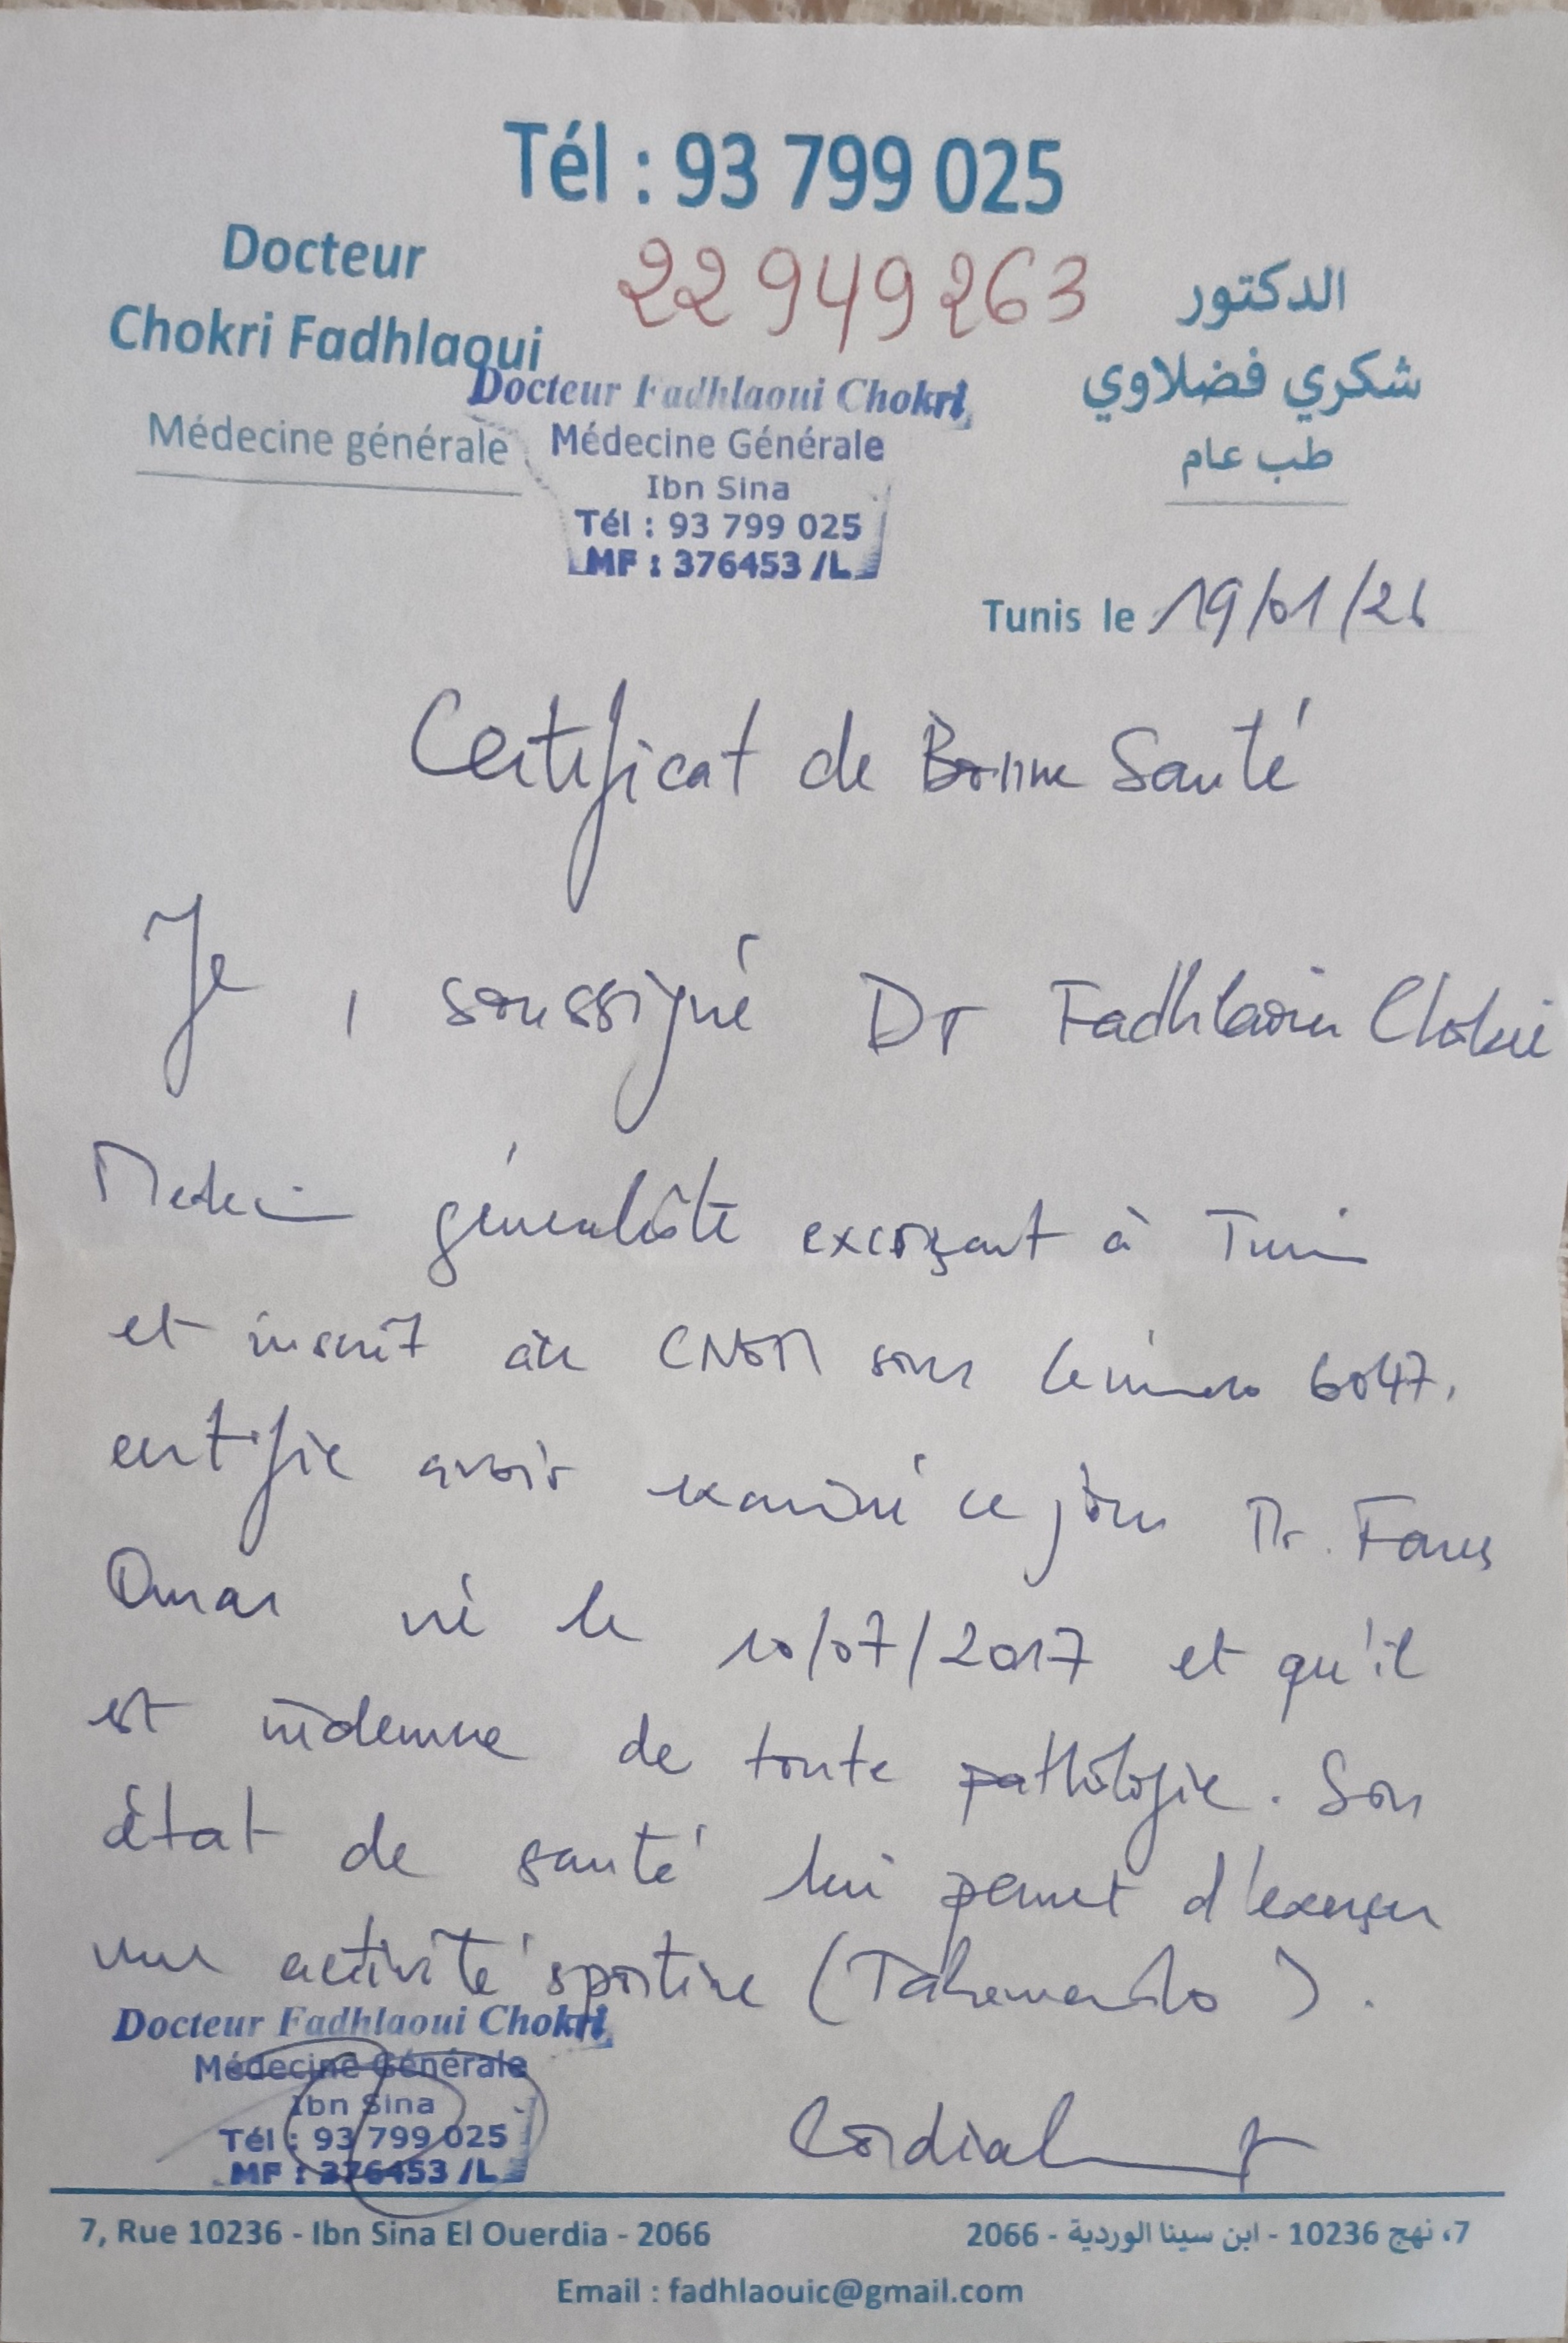 Tél : 93 799 025
22 949 263
Docteur
Chokri Fadhlaoui
Médecine générale
الدكتور
شكري فضلاوي
طب عام
Docteur Fadhlaoui Chokri
Médecine Générale
Ibn Sina
Tél : 93 799 025
MF : 376453 /L
Tunis le 19/01/26
Certificat de Bonne Santé
Je, soussigné Dr Fadhlaoui Chokri
Medecin généraliste exerçant à Tunis
et inscrit au CNOM sous le numero 6047,
certifie avoir examiné ce jour Mr. Fares
Omar né le 10/07/2017 et qu'il
est indemne de toute pathologie. Son
état de santé lui permet d'exerçer
une activité sportive (Takewendo).
Docteur Fadhlaoui Chokri
Médecine Générale
Ibn Sina
Tél : 93 799 025
MF : 376453 /L
Cordialement
7, Rue 10236 - Ibn Sina El Ouerdia - 2066
7، نهج 10236 - ابن سينا الوردية - 2066
Email : fadhlaouic@gmail.com